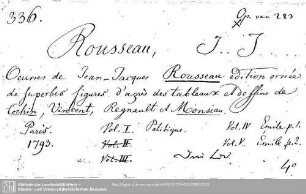 336.
Rousseau, J. J
Oeuvres de Jean-Jacques Rousseau édition ornée
de superbes figures d'après des tableaux et dessins de
Cochin, Vincent, Regnault et Monsiau.
Paris. Vol. I. Politique. Vol. IV Emile p. 1.
1793. Vol. II. Vol. V. Emile p. 2.
Vol. III.
4o